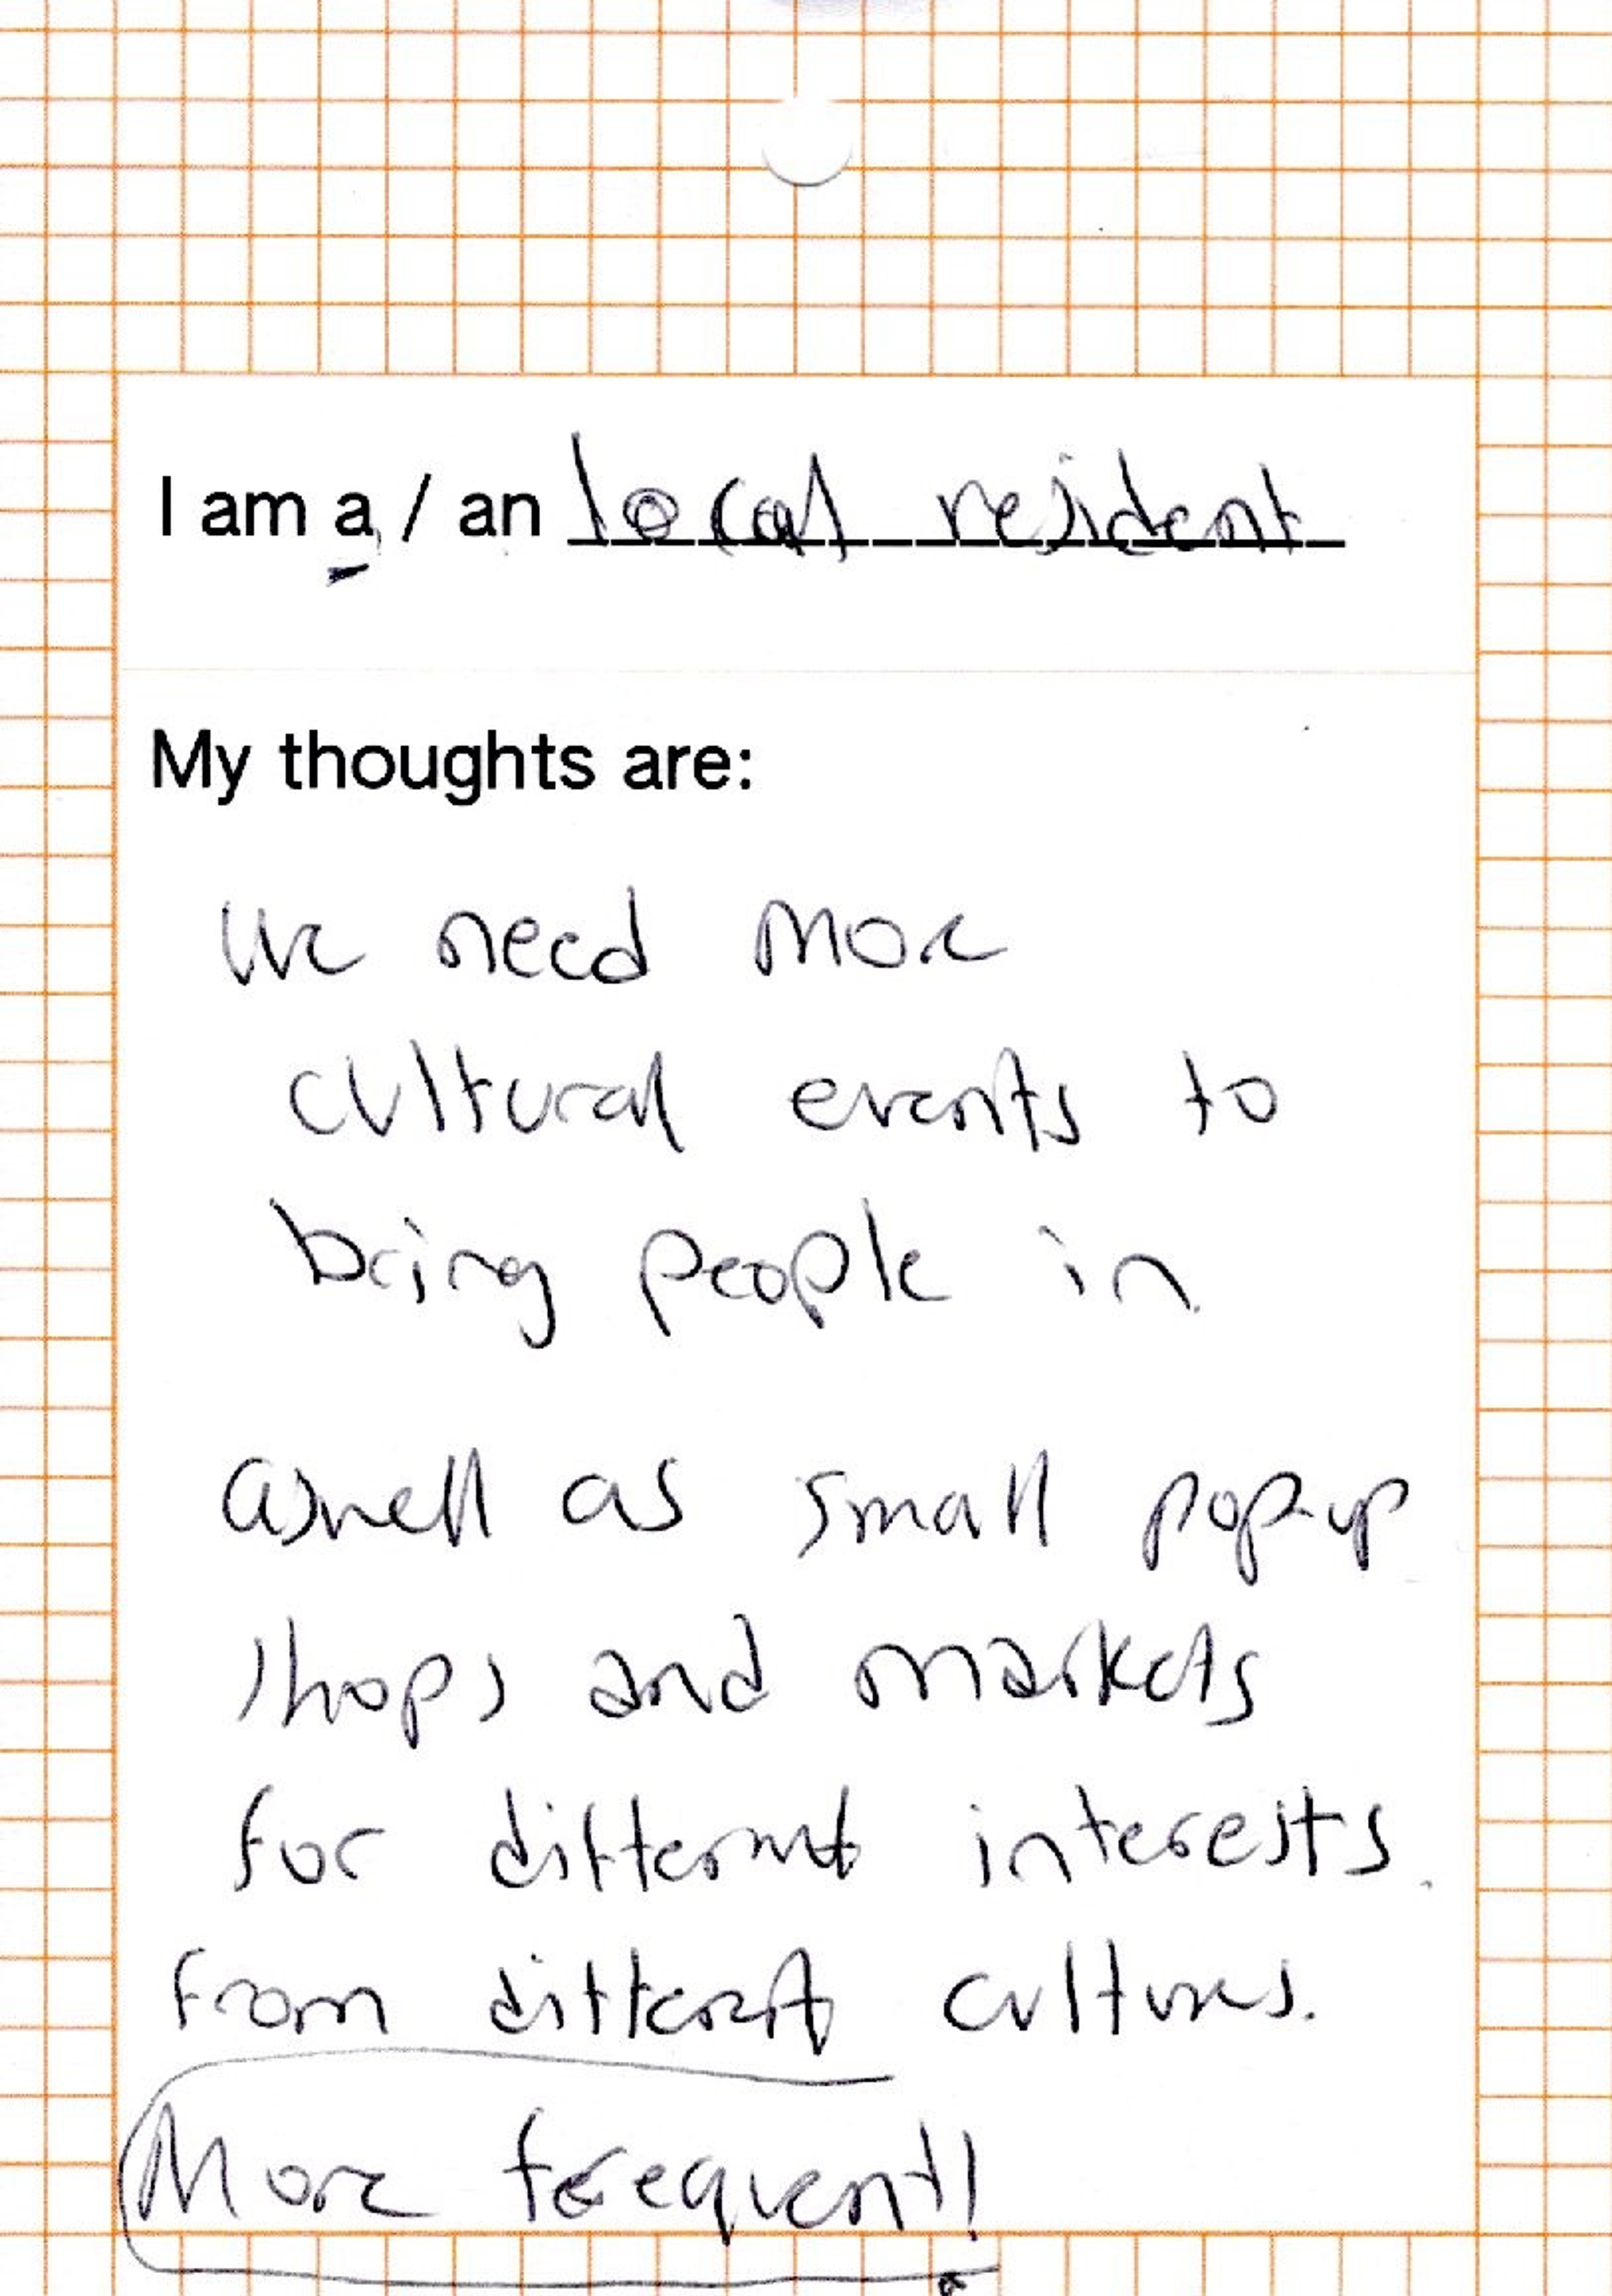 I am a / an local resident
My thoughts are:
We need more
cultural events to
bring people in
aswell as small pop-up
shops and markets
for different interests.
from different cultures.
More frequent!